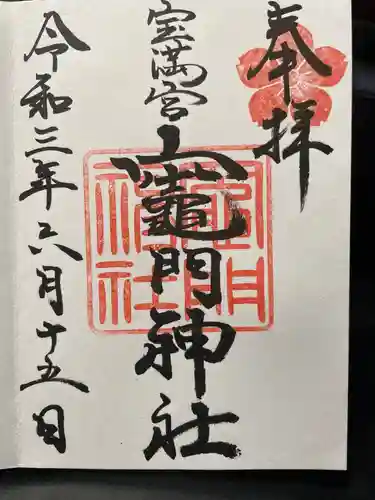 奉拝
宝満宮
竈門神社
令和三年六月十五日
竈門神社